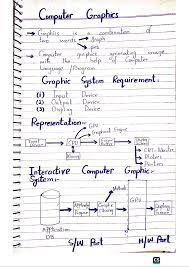 Computer Graphics
→ Graphics is a combination of
two words → Graph
→ pics
→ Computer graphics generating image
with the help of Computer
Language / Program.
Graphic System Requirement.
(1) Input Device
(2) Output Device
(3) Display Device
Representation:-
GPU
→ Graphical Engine
Input Device
CPU
Display Device
Memory
→ CRT-Monitor
→ Ploters
→ Printers
Interactive Computer Graphic
System:-
Methods
GPU
Application
Graphic Library
Display
Application
DB
S/W Part
H/W Part
CS